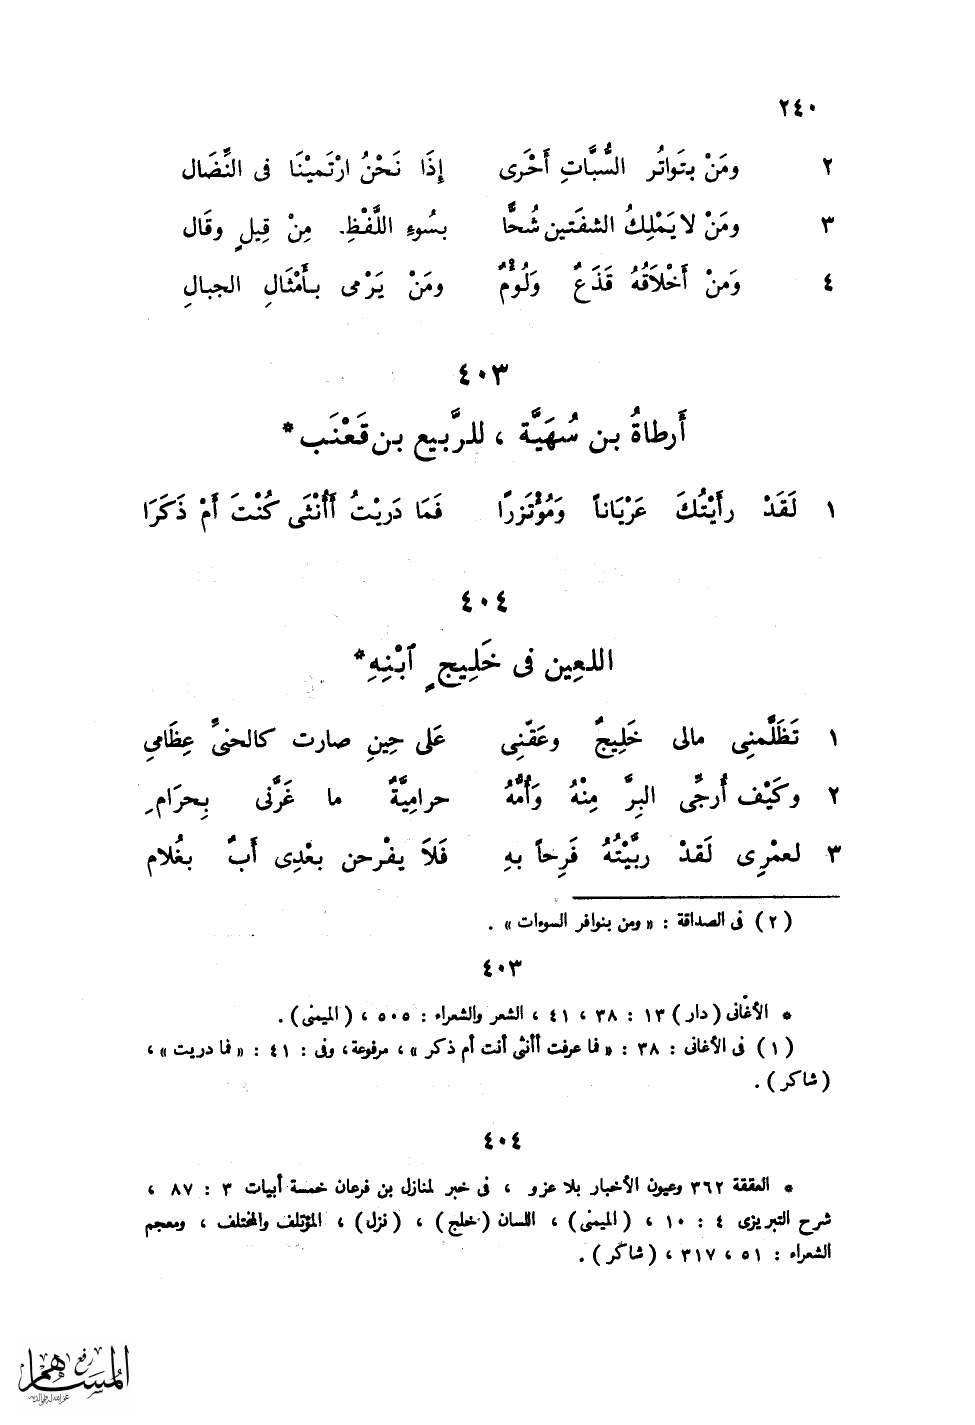 ٢٤٠
٢ ومَنْ بتَواتُر السُّبَّاتِ أَحْرَى إِذَا نَحْنُ ارْتَمَيْنَا فى النِّضَال
٣ ومَنْ لا يَمْلِكُ الشفَتين شُحًّا بسُوءِ اللَّفْظِ مِنْ قِيلٍ وقَال
٤ وَمَنْ أَخْلَاقُهُ قَذَعٌ وَلُؤْمٌ ومَنْ يَرْمى بأَمْثَالِ الجبالِ
٤٠٣
أَرطاةُ بن سُهَيَّة ، للرَّبيع بن قَعْنَب *
١ لَقَدْ رأَيْتُكَ عَرْيَاناً وَمُؤْتَزرًا فَمَا دَريْتُ أَأُنْثَى كُنْتَ أَمْ ذَكَرَا
٤٠٤
اللعِين فى خَلِيجٍ ٱبْنِهِ *
١ تَظَلَّمنِى مالى خَلِيجٌ وعَقّنِى عَلَى حِينِ صارت كالحنىِّ عِظَامىِ
٢ وكَيْف أُرجِّى البِرَّ مِنْهُ وَأُمُّهُ حرامِيَّةٌ ما غَرَّنى بِحرَامِ
٣ لعمْرِى لَقدْ ربَّيْتُهُ فَرِحاً بهِ فَلاَ يفْرحن بعْدِى أَبٌ بغُلام
( ٢ ) فى الصداقة : « ومن بنوافر السوءات » .
٤٠٣
* الأغانى ( دار ) ١٣ : ٣٨ ، ٤١ ، الشعر والشعراء : ٥٠٥ ، ( الميمنى ) .
( ١ ) فى الأغانى : ٣٨ : « فما عرفت أأنثى أنت أم ذكر » ، مرفوعة ، وفى : ٤١ : « فما دريت » ،
( شاكر ) .
٤٠٤
* العققة ٣٦٢ وعيون الأخبار بلا عزو ، فى خبر لمنازل بن فرعان خمسة أبيات ٣ : ٨٧ ،
شرح التبريزى ٤ : ١٠ ، ( الميمنى ) ، اللسان ( خلج ) ، ( نزل ) ، المؤتلف والمختلف ، ومعجم
الشعراء : ٥١ ، ٣١٧ ، ( شاكر ) .
رفع
المساهم